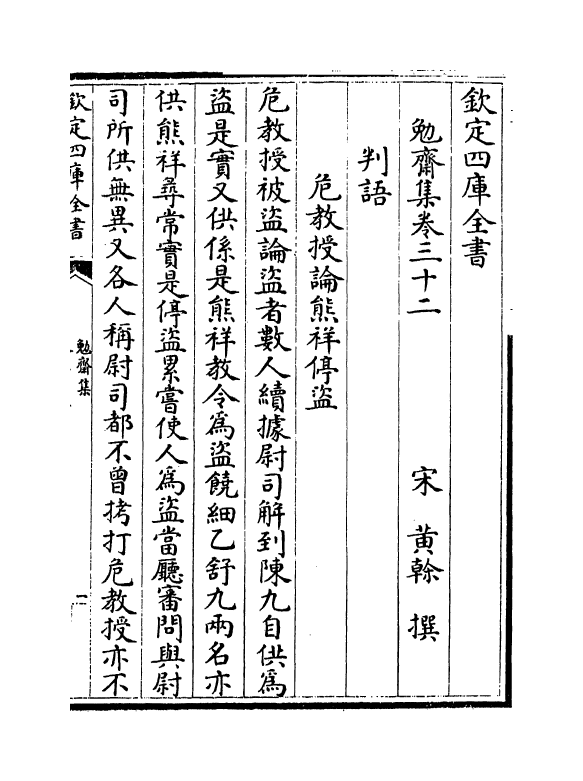 欽定四庫全書
勉齋集卷三十二
宋 黄榦 撰
判語
危教授論熊祥停盜
危教授被盜論盜者數人續據尉司解到陳九自供為
盜是實又供係是熊祥教令為盜饒細乙舒九兩名亦
供熊祥尋常實是停盜累嘗使人為盜當廳審問與尉
司所供無異又各人稱尉司都不曾拷打危教授亦不
欽定四庫全書
勉齋集